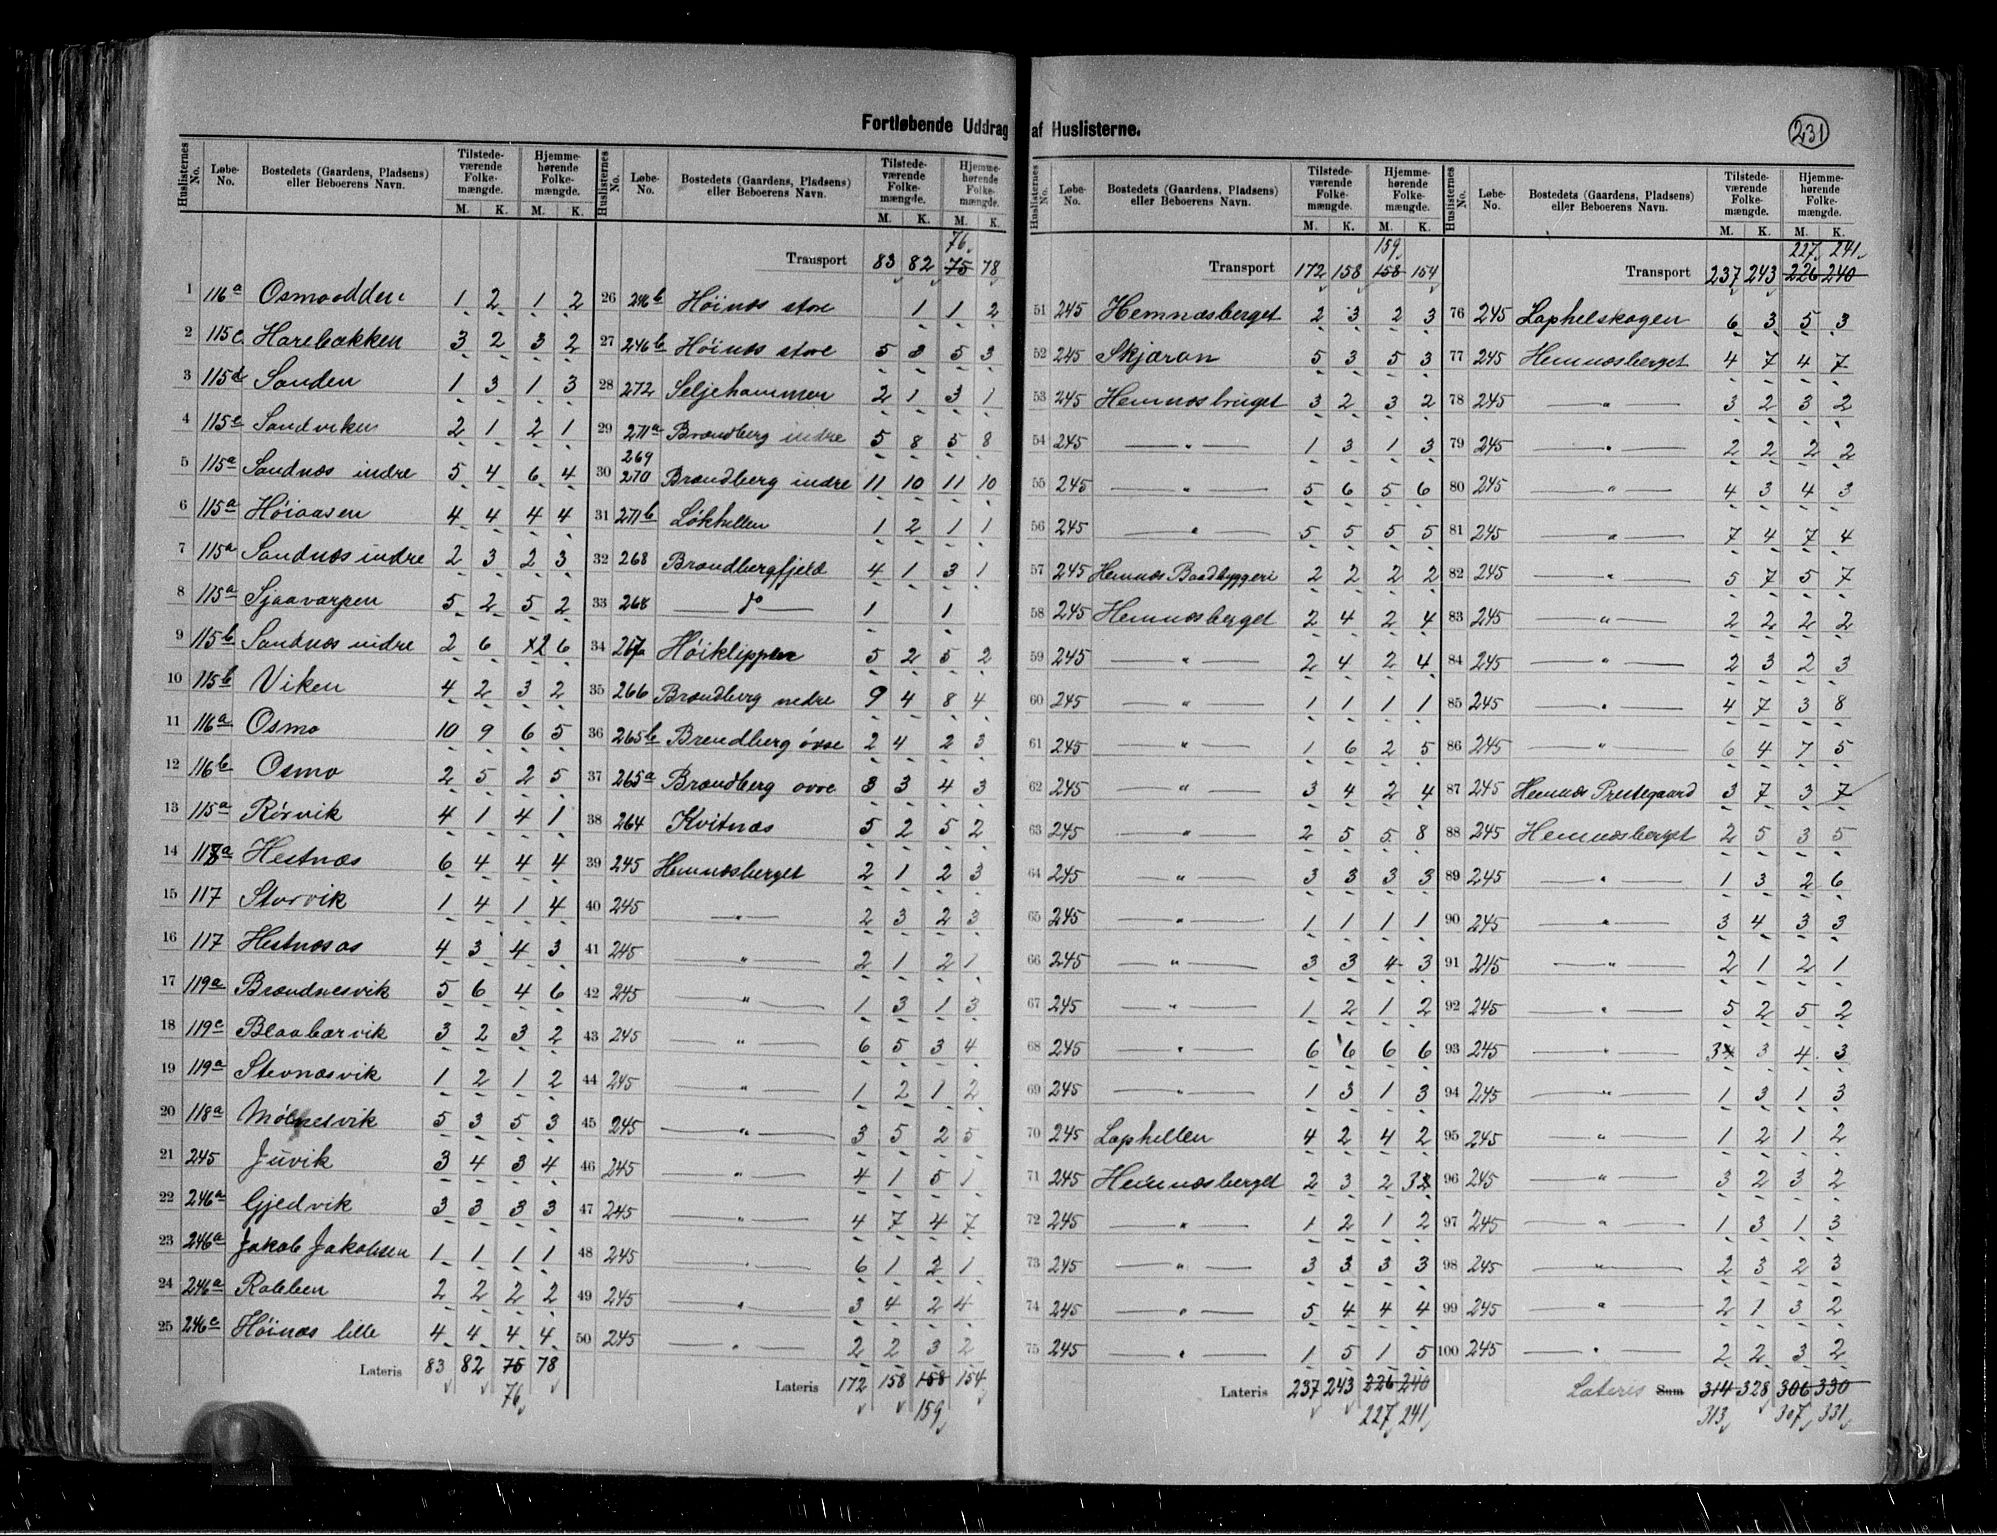 Fortløbende Uddrag af Huslisterne.
231
Huslisternes No. Løbe-No. Bostedets (Gaardens, Pladsens) eller Beboerens Navn. Tilstedeværende Folkemængde. M. K. Hjemmehørende Folkemængde. M. K.
1 116a Osmoodden 1 2 1 2
2 115c Harebækken 3 2 3 2
3 115d Sanden 1 3 1 3
4 115e Sandviken 2 1 2 1
5 115a Sandnæs indre 5 4 6 4
6 115a Høiaasen 4 4 4 4
7 115a Sandnæs indre 2 3 2 3
8 115a Sjaavarpen 5 2 5 2
9 115b Sandnæs indre 2 6 2 6
10 115b Viken 4 2 3 2
11 116a Osmo 10 9 6 5
12 116b Osmo 2 5 2 5
13 115a Rørvik 4 1 4 1
14 118a Hestnæs 6 4 4 4
15 117 Storvik 1 4 1 4
16 117 Hestnæsas 4 3 4 3
17 119a Brændnesvik 5 6 4 6
18 119c Blaabærvik 3 2 3 2
19 119a Stevnæsvik 1 2 1 2
20 118a Mølnesvik 5 3 5 3
21 245 Juvik 3 4 3 4
22 246a Gjedvik 3 3 3 3
23 246a Jakob Jakobsen 1 1 1 1
24 246a Rabben 2 2 2 2
25 246c Høinæs lille 4 4 4 4
Lateris 83 82 75 78
76
Huslisternes No. Løbe-No. Bostedets (Gaardens, Pladsens) eller Beboerens Navn. Tilstedeværende Folkemængde. M. K. Hjemmehørende Folkemængde. M. K.
76
Transport 83 82 75 78
26 246b Høinæs store 1 1 2
27 246b Høinæs store 5 3 5 3
28 272 Seljehammen 2 1 3 1
29 271a Brændberg indre 5 8 5 8
269
30 270 Brændberg indre 11 10 11 10
31 271b Løkhellen 1 2 1 1
32 268 Brændbergfjeld 4 1 3 1
33 268 — do — 1 1
34 267 Høiklippen 5 2 5 2
35 266 Brændberg nedre 9 4 8 4
36 265b Brendberg øvre 2 4 2 3
37 265a Brændberg øvre 3 3 4 3
38 264 Kvitnæs 5 2 5 2
39 245 Hemnæsberget 2 1 2 3
40 245 — " — 2 3 2 3
41 245 — " — 2 1 2 1
42 245 — " — 1 3 1 3
43 245 — " — 6 5 3 4
44 245 — " — 1 2 1 2
45 245 — " — 3 5 2 5
46 245 — " — 4 1 5 1
47 245 — " — 4 7 4 7
48 245 — " — 6 1 2 1
49 245 — " — 3 4 2 4
50 245 — " — 2 2 3 2
Lateris 172 158 158 154
159
Huslisternes No. Løbe-No. Bostedets (Gaardens, Pladsens) eller Beboerens Navn. Tilstedeværende Folkemængde. M. K. Hjemmehørende Folkemængde. M. K.
159
Transport 172 158 158 154
51 245 Hemnæsberget 2 3 2 3
52 245 Skjæran 5 3 5 3
53 245 Hemnæsbruget 3 2 3 2
54 245 — " — 1 3 1 3
55 245 — " — 5 6 5 6
56 245 — " — 5 5 5 5
57 245 Hemnæs Baadbyggeri 2 2 2 2
58 245 Hemnæsberget 2 4 2 4
59 245 — " — 2 4 2 4
60 245 — " — 1 1 1 1
61 245 — " — 1 6 2 5
62 245 — " — 3 4 2 4
63 245 — " — 2 5 5 8
64 245 — " — 3 3 3 3
65 245 — " — 1 1 1 1
66 245 — " — 3 3 4 3
67 245 — " — 1 2 1 2
68 245 — " — 6 6 6 6
69 245 — " — 1 3 1 3
70 245 Laphellen 4 2 4 2
71 245 Hemnæsberget 2 3 2 3
72 245 — " — 1 2 1 2
73 245 — " — 3 3 3 3
74 245 — " — 5 4 4 4
75 245 — " — 1 5 1 5
Lateris 237 243 226 240
227 241
Huslisternes No. Løbe-No. Bostedets (Gaardens, Pladsens) eller Beboerens Navn. Tilstedeværende Folkemængde. M. K. Hjemmehørende Folkemængde. M. K.
227 241
Transport 237 243 226 240
76 245 Laphelskogen 6 3 5 3
77 245 Hemnæsberget 4 7 4 7
78 245 — " — 3 2 3 2
79 245 — " — 2 2 2 2
80 245 — " — 4 3 4 3
81 245 — " — 7 4 7 4
82 245 — " — 5 7 5 7
83 245 — " — 2 2 2 2
84 245 — " — 2 3 2 3
85 245 — " — 4 7 3 8
86 245 — " — 6 4 7 5
87 245 Hemnæs Prestegaard 3 7 3 7
88 245 Hemnæsberget 2 5 3 5
89 245 — " — 1 3 2 6
90 245 — " — 3 4 3 3
91 245 — " — 2 1 2 1
92 245 — " — 5 2 5 2
93 245 — " — 3 3 4 3
94 245 — " — 1 3 1 3
95 245 — " — 1 2 1 2
96 245 — " — 3 2 3 2
97 245 — " — 1 3 1 3
98 245 — " — 2 3 2 3
99 245 — " — 2 1 3 2
100 245 — " — 2 2 3 2
Lateris Sum 314 328 306 330
313 307 331